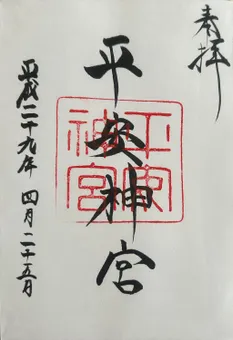 奉拝
平安神宮
平安神宮
平成二十九年 四月二十五日